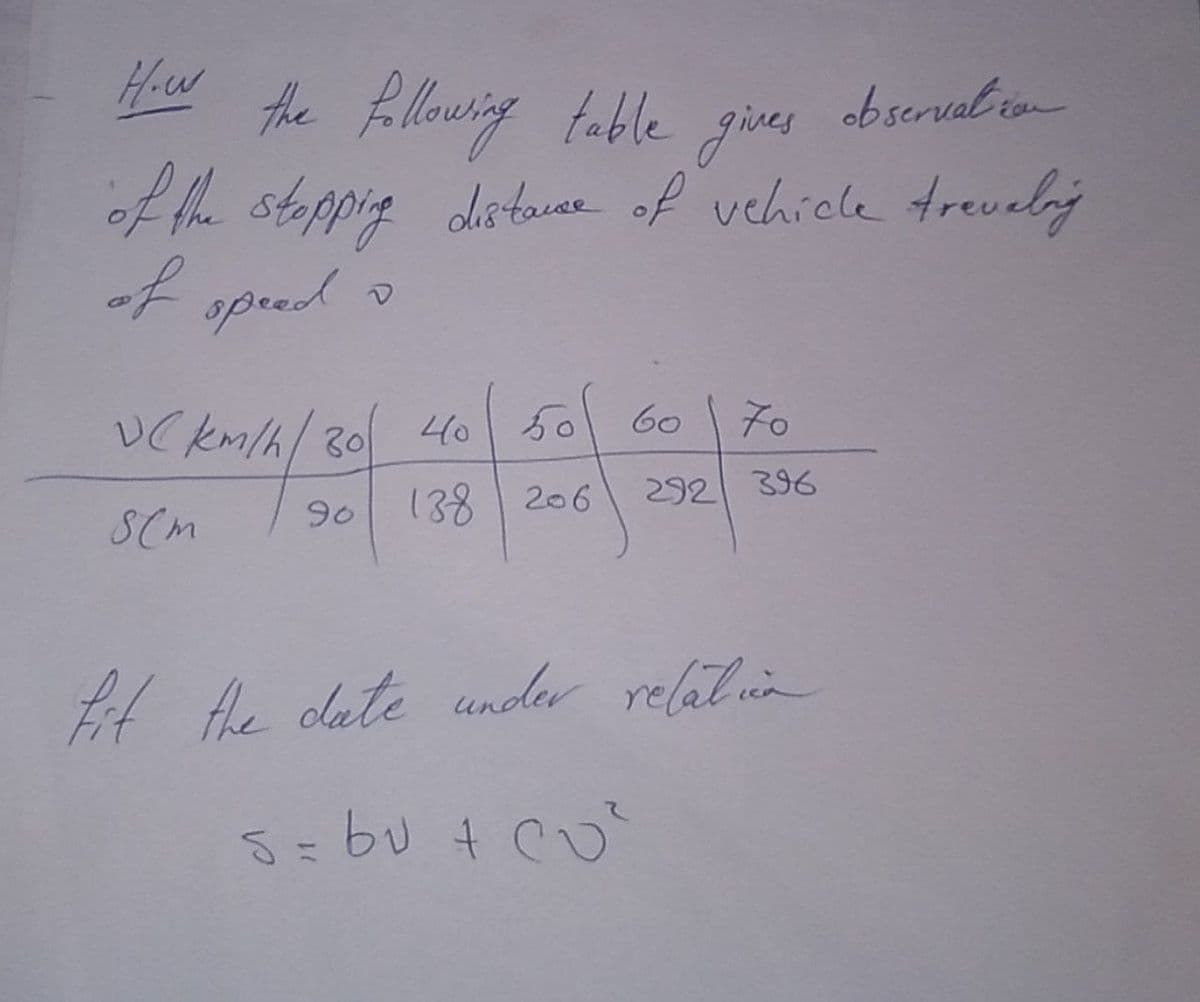 H.W the following table gives observation
of the stopping distance of vehicle trevaling
of speed v
v(km/h/ 30 40 50 60 70
S(m 90 138 206 292 396
fit the date under relation
S = bv + cv²